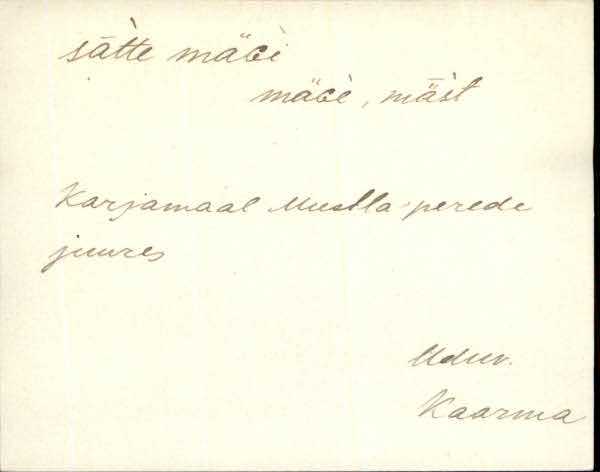 sätte mäGì
mäGè, mäst
Karjamaal Mustla perede
juures
Uduv.
Kaarma